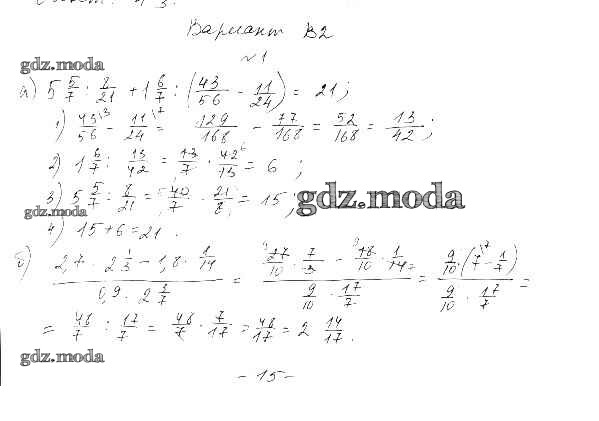 Вариант В2
№1
gdz.moda
а) 5 5/7 : 8/21 + 1 6/7 : (43/56 - 11/24) = 21;
1) 43/56 - 11/24 = 129/168 - 77/168 = 52/168 = 13/42;
2) 1 6/7 : 13/42 = 13/7 · 42/13 = 6;
3) 5 5/7 : 8/21 = 40/7 · 21/8 = 15;
gdz.moda
gdz.moda
4) 15+6=21.
б) (2,7 · 2 1/3 - 1,8 · 1/14) / (0,9 · 2 3/7) = (27/10 · 7/3 - 18/10 · 1/14) / (9/10 · 17/7) = (9/10 · (7 - 1/7)) / (9/10 · 17/7) =
= 48/7 : 17/7 = 48/7 · 7/17 = 48/17 = 2 14/17.
gdz.moda
- 15 -